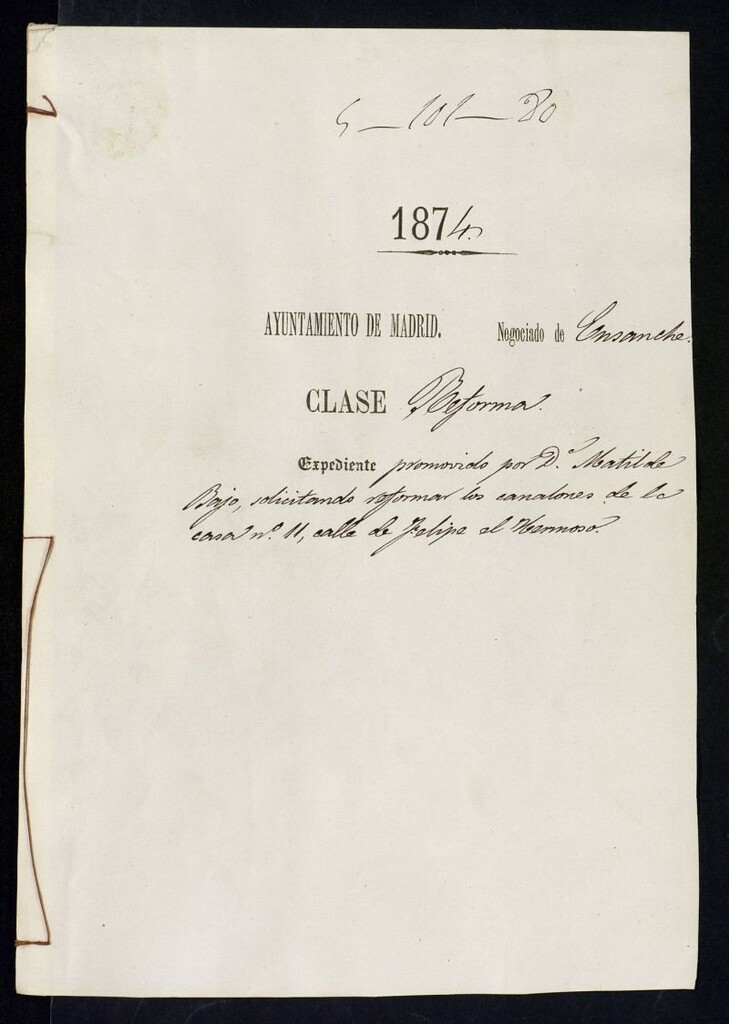 5-101-80
1874.
AYUNTAMIENTO DE MADRID. Negociado de Ensanche.
CLASE Reforma.
Expediente promovido por D.ª Matilde
Bajo, solicitando reformar los canalones de la
casa n.º 11, calle de Felipe el Hermoso.